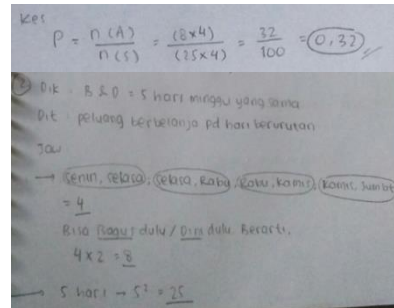 Kes
P = n(A) / n(S) = (8x4) / (25x4) = 32 / 100 = 0,32
② Dik : B & D = 5 hari minggu yang sama
Dit : peluang berbelanja pd hari berurutan
Jaw
→ Senin, Selasa, Selasa, Rabu, Rabu, Kamis, Kamis, Jumat
= 4
Bisa Bagus dulu / Dini dulu. Berarti,
4 x 2 = 8
→ 5 hari → 5² = 25